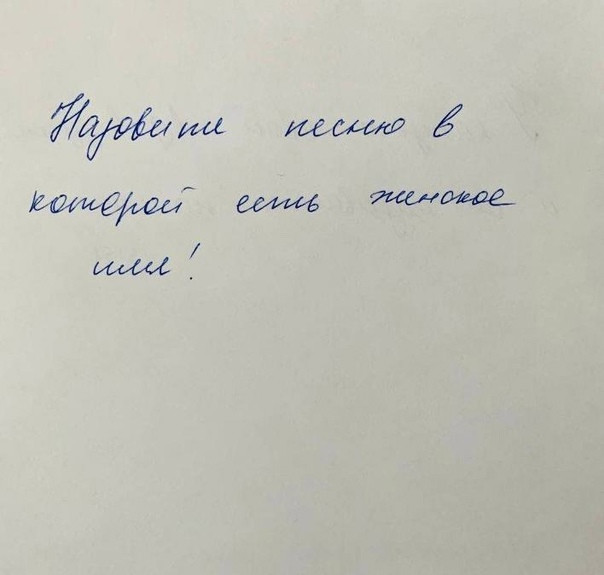 Назовите песню в
которой есть женское
имя!